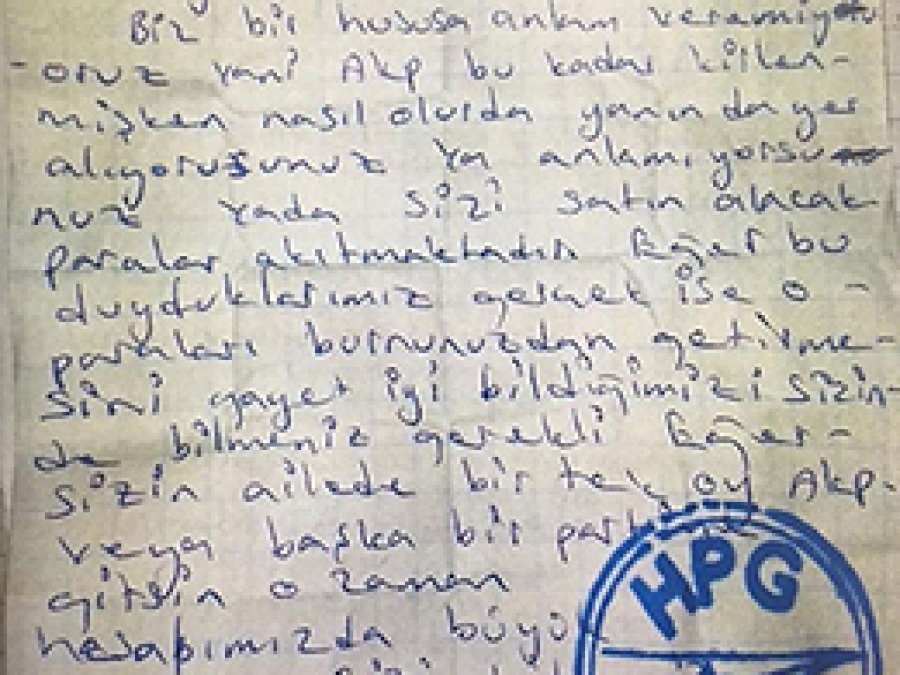 Biz bir hususa anlam veremiy
oruz Yani Akp bu kadar kitlen-
mişken nasıl olurda yanında yer
alıyorusunuz Ya anlamıyorsu
nuz Yada sizi satın alacak
paralar akıtmaktadır Eğer bu
duyduklarımız gerçek ise o -
paraları burnunuzdan getirme-
sini gayet iyi bildiğimizi sizin-
de bilmeniz gerekli Eğer-
sizin ailede bir tek oy Akp-
veya başka bir
gitsin o zaman
hesapımızda
HPG